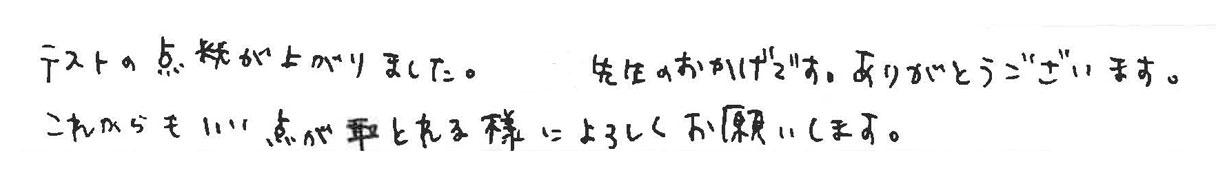 テストの点数が上がりました。 先生のおかげです。ありがとうございます。
これからもいい点がとれる様によろしくお願いします。